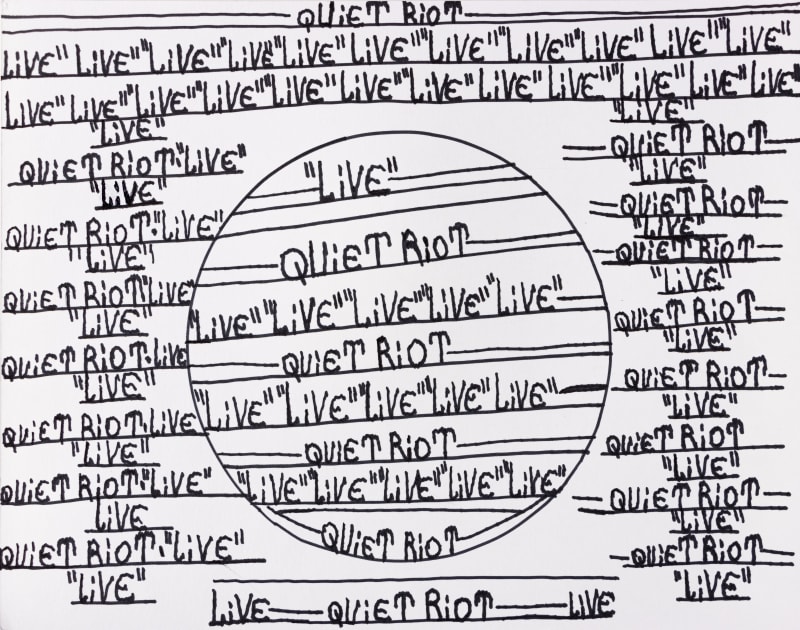 QUiET RiOT
LiVE" LiVE" "LiVE" "LiVE" "LiVE" "LiVE" "LiVE" "LiVE" "LiVE" "LiVE" "LiVE"
LiVE" LiVE" "LiVE" "LiVE" "LiVE" "LiVE" "LiVE" "LiVE" LiVE" "LiVE" LiVE LiVE"
"LiVE"
QUiET RiOT·"LiVE"
"LiVE"
QUiET RiOT·"LiVE"
"LiVE"
QUiET RiOT"LiVE
"LiVE"
QUiET RiOT·LiVE
"LiVE"
QUiET RiOT·LiVE
"LiVE"
QUiET RiOT·"LiVE"
LiVE
QUiET RiOT·"LiVE"
"LiVE"
"LiVE"
QUiET RiOT
"LiVE" "LiVE" "LiVE" "LiVE" "LiVE"
QUiET RiOT
"LiVE" "LiVE" "LiVE" "LiVE" "LiVE"
QUiET RiOT
"LiVE" "LiVE" "LiVE" "LiVE" "LiVE"
QUiET RiOT
"LiVE"
QUiET RiOT
"LiVE"
QUiET RiOT
"LiVE"
QUiET RiOT
"LiVE"
QUiET RiOT
"LiVE"
QUiET RiOT
"LiVE"
QUiET RiOT
"LiVE"
QUiET RiOT
"LiVE"
QUiET RiOT
"LiVE"
LiVE — QUiET RiOT — LiVE